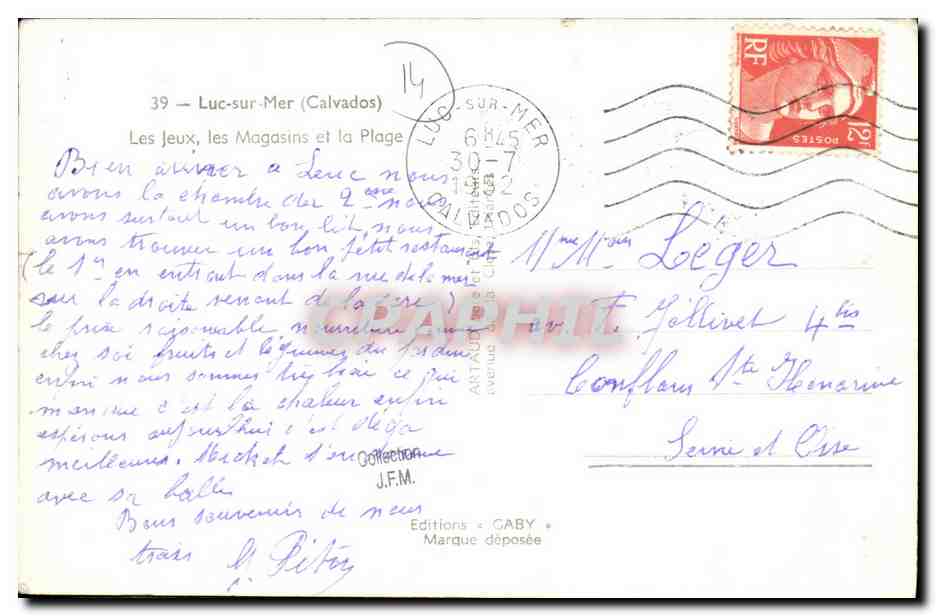 39 — Luc-sur-Mer (Calvados)
Les Jeux, les Magasins et la Plage
14
LUC-SUR-MER
6 H45
30-7
1952
CALVADOS
RF
POSTES
12F
Bien arriver a Luc nous
avons la chambre der 2eme nous
avons surtout un bon lit, nous
avons trouver un bon petit restaurant
(le 1er en entrant dans la rue de la mer
sur la droite venant de la gare)
le prix raisonable nourriture comme
chez soi fruits et légumes du jardin
enfin nous sommes très bien ce qui
manque c'est la chaleur enfin
espérons aujourd'hui c'est déja
meilleur. Micket s'en donne
avec sa balle
Bons souvenirs de nous
trois
Mme Mr Leger
av. F. Jollivet 4bis
Conflans Ste Honorine
Seine et Oise
ARTAUD Père et Fils, Editeurs
avenue de la Close, Nantes
CPAPHIL
Collection
J.F.M.
Editions « GABY »
Marque déposée